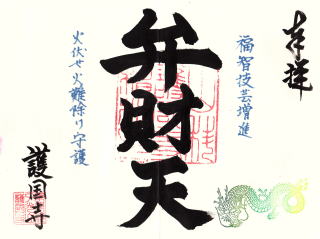 奉拝
福智技芸増進
弁財天
火伏せ火難除り守護
護国寺